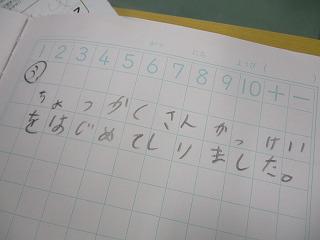 がつ にち ようび ( )
1 2 3 4 5 6 7 8 9 10 + −
③
ちょっかくさんかっけい
をはじめてしりました。